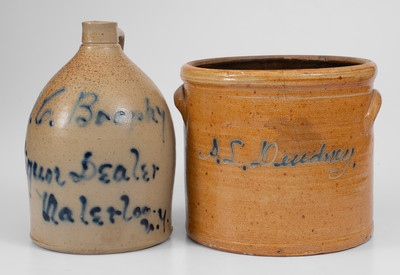 G. Brophy
quor Dealer
Waterloo
N.Y.
A. L. Dewdney.